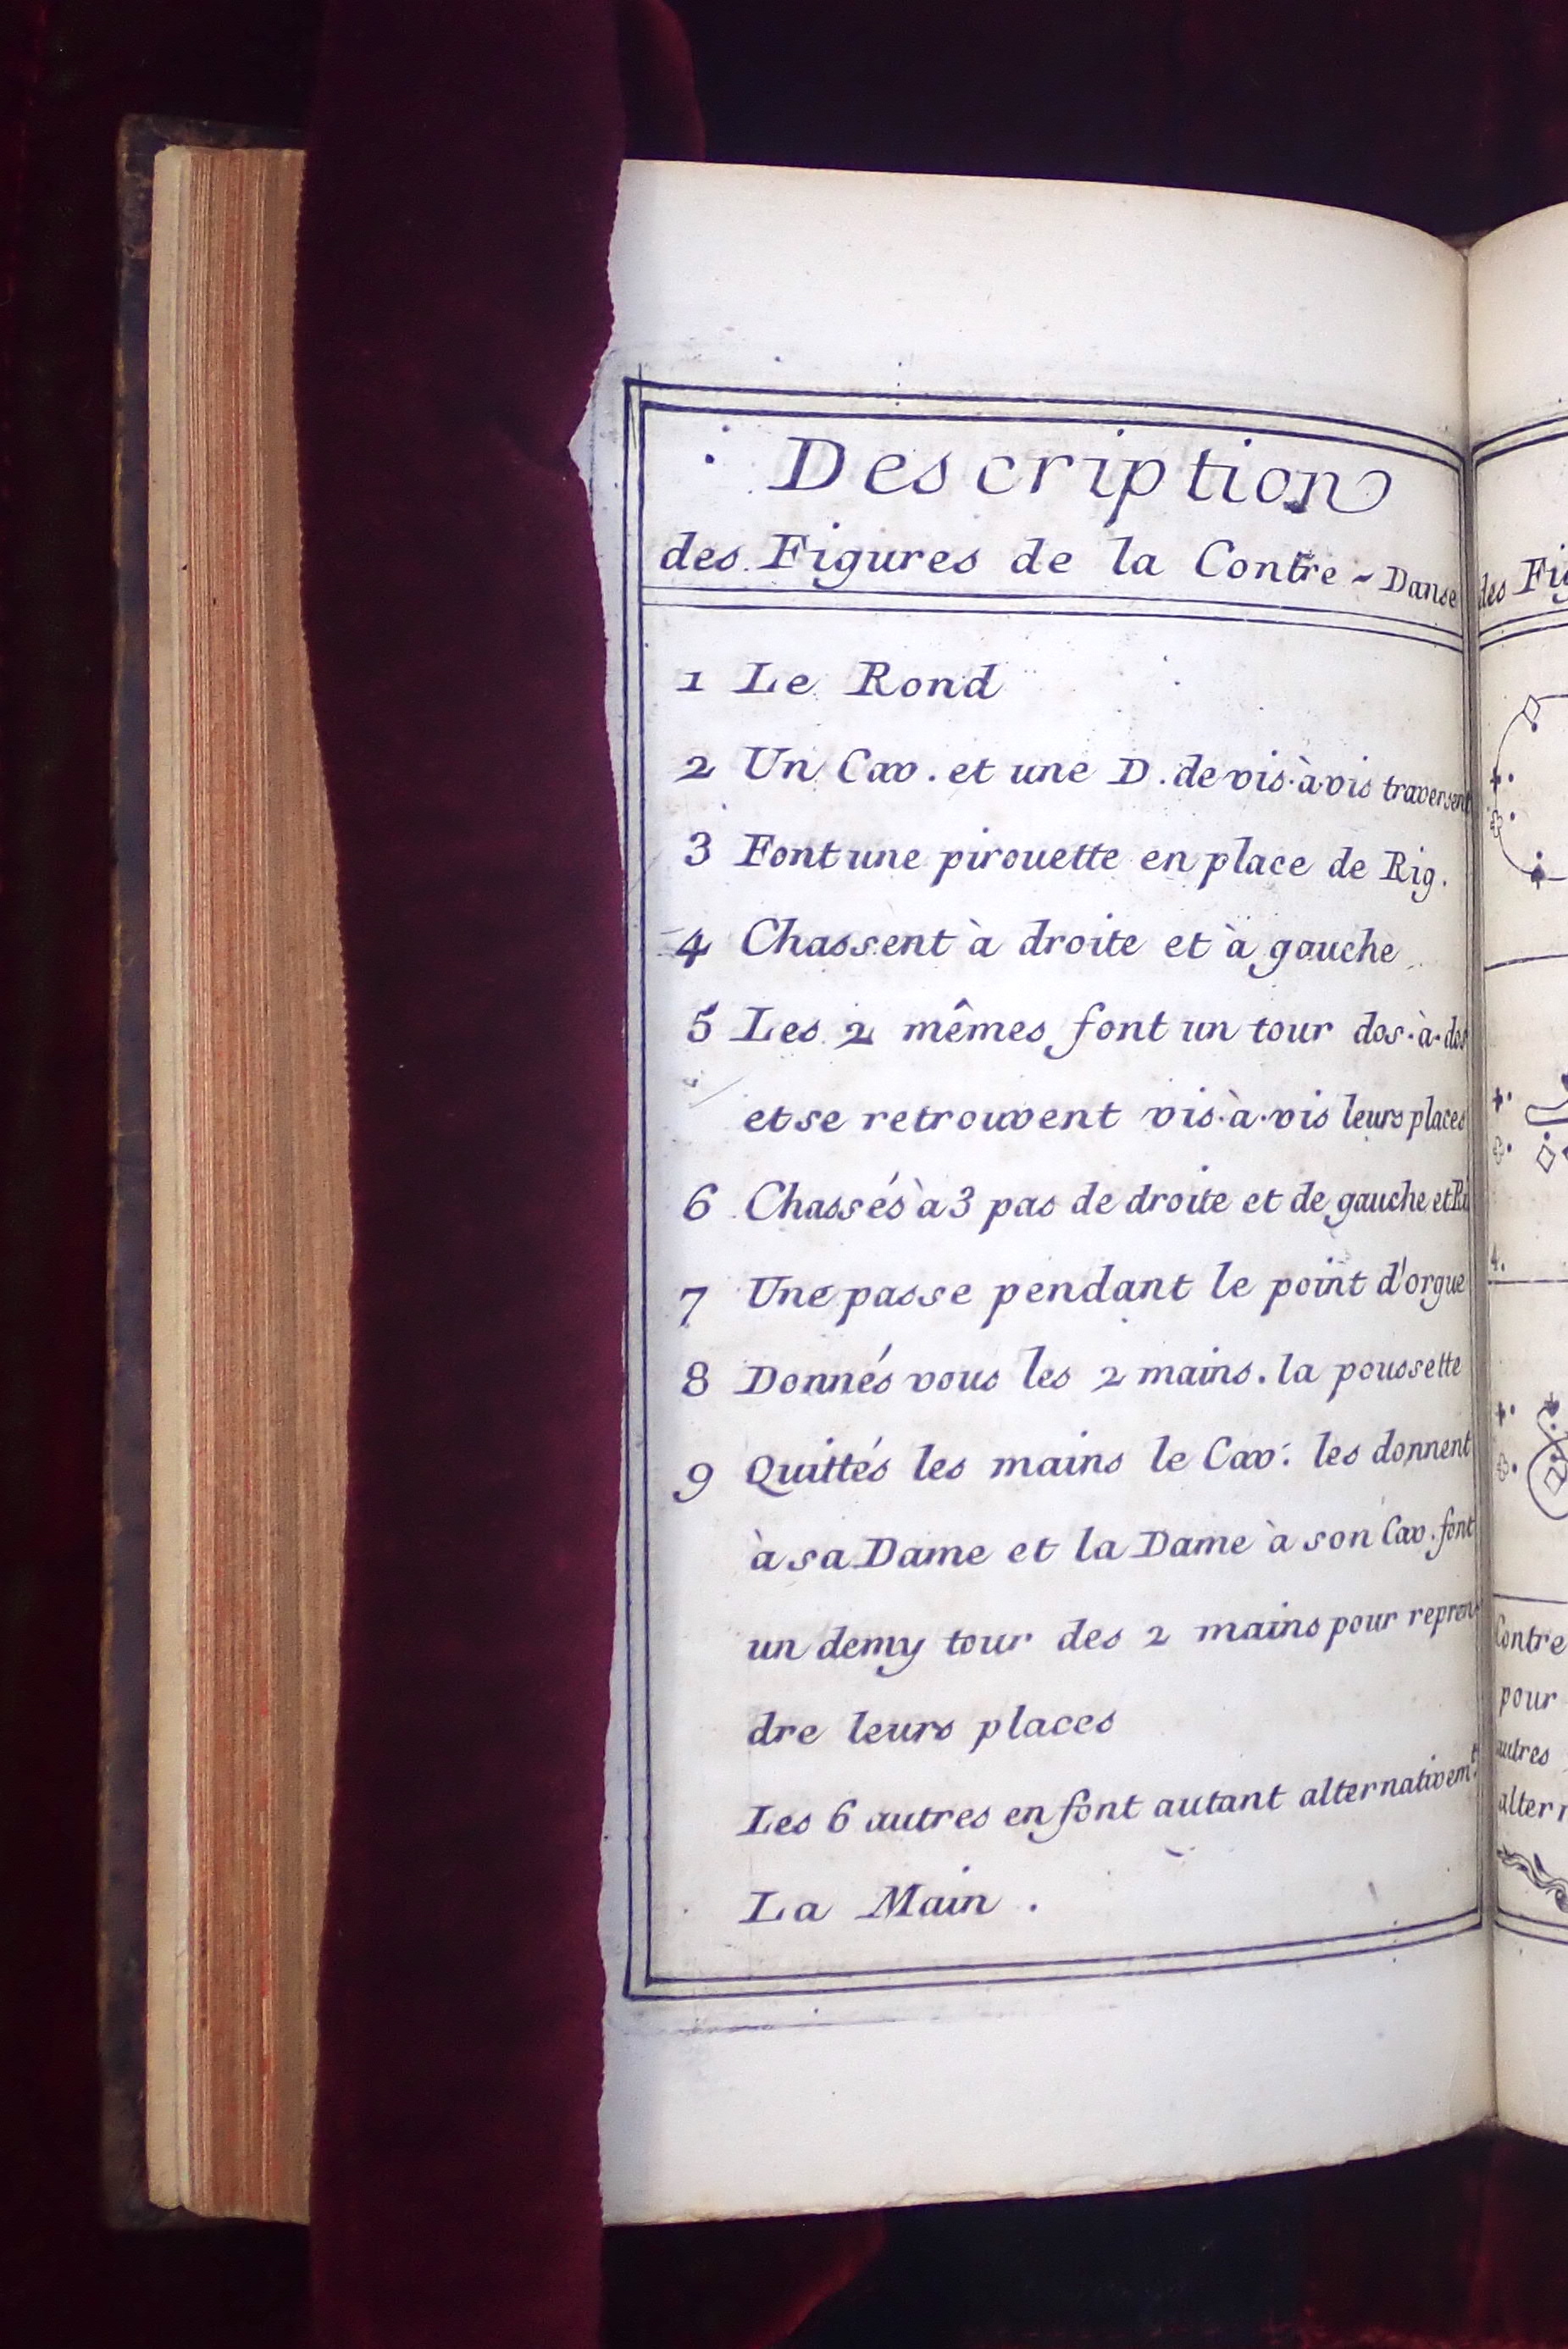 Description
des Figures de la Contre-Danse
1 Le Rond
2 Un Cav. et une D. de vis-à-vis traversent
3 Font une pirouette en place de Rig.
4 Chassent à droite et à gauche
5 Les 2 mêmes font un tour dos-à-dos
et se retrouvent vis-à-vis leurs places
6 Chassés à 3 pas de droite et de gauche et
7 Une passe pendant le point d'orgue
8 Donnés vous les 2 mains. la poussette
9 Quittés les mains le Cav: les donnent
à sa Dame et la Dame à son Cav. font
un demy tour des 2 mains pour repren-
dre leurs places
Les 6 autres en font autant alternativem.t
La Main.
des Fig
4.
Contre
pour
autres
altern